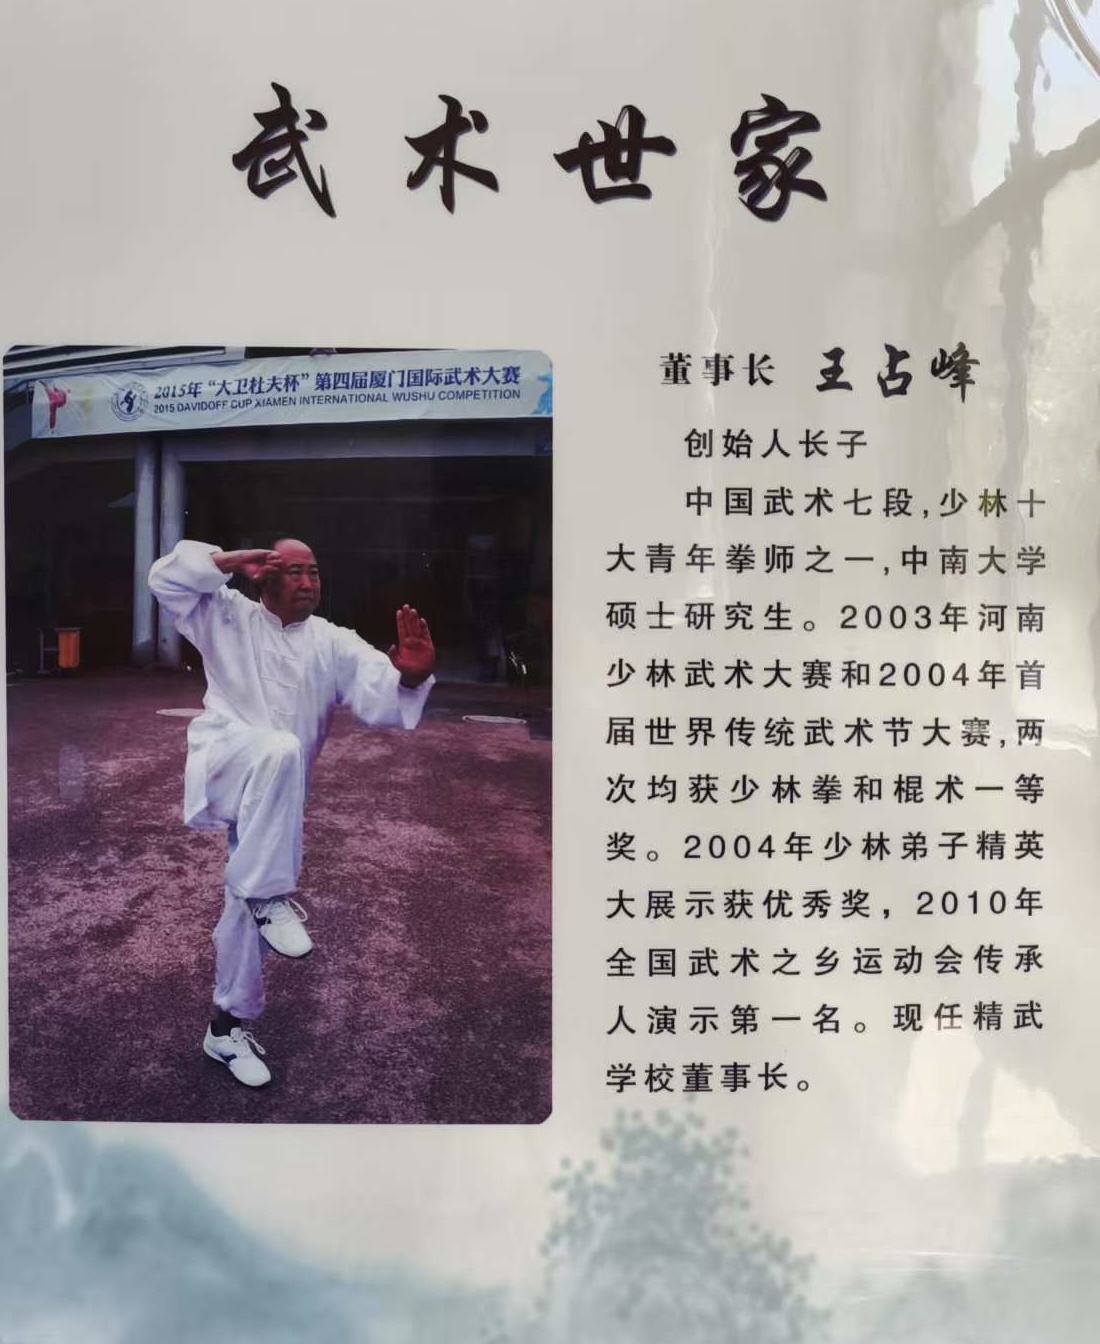 武术世家
2015年“大卫杜夫杯”第四届厦门国际武术大赛
2015 DAVIDOFF CUP XIAMEN INTERNATIONAL WUSHU COMPETITION
董事长 王占峰
创始人长子
中国武术七段,少林十
大青年拳师之一,中南大学
硕士研究生。2003年河南
少林武术大赛和2004年首
届世界传统武术节大赛,两
次均获少林拳和棍术一等
奖。2004年少林弟子精英
大展示获优秀奖，2010年
全国武术之乡运动会传承
人演示第一名。现任精武
学校董事长。